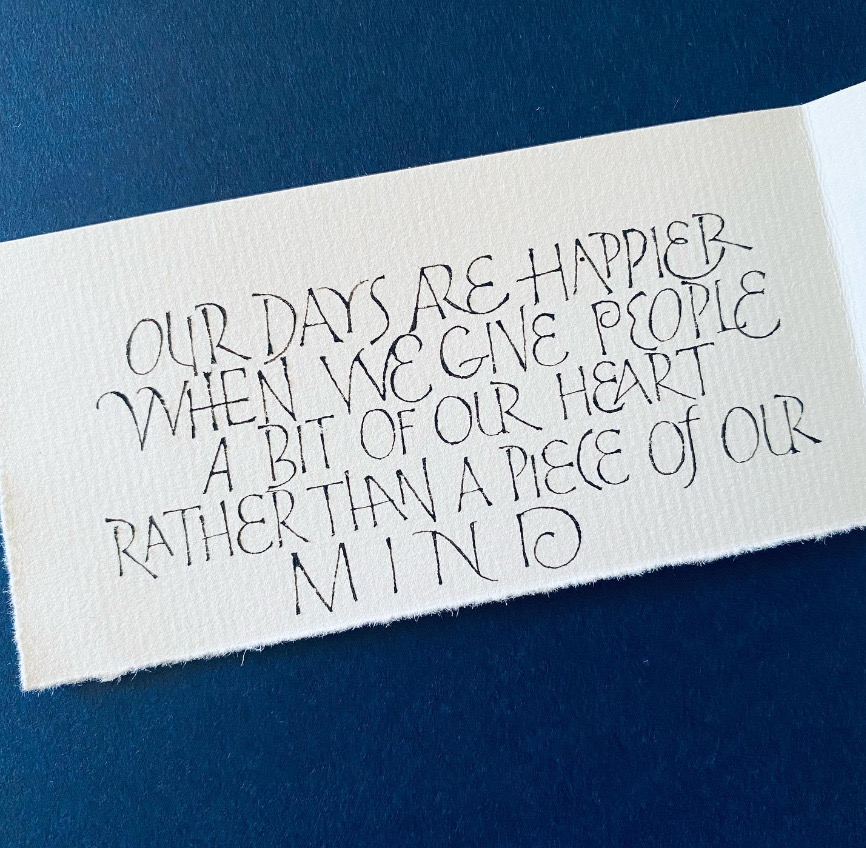 OUR DAYS ARE HAPPIER
WHEN WE GIVE PEOPLE
A BIT OF OUR HEART
RATHER THAN A PIECE Of OUR
MIND